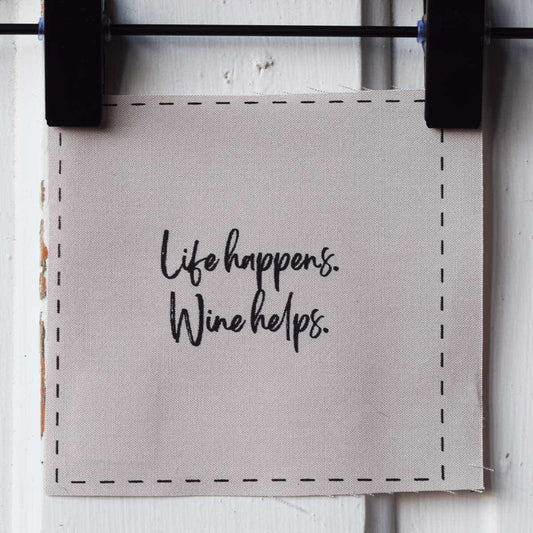 Life happens.
Wine helps.